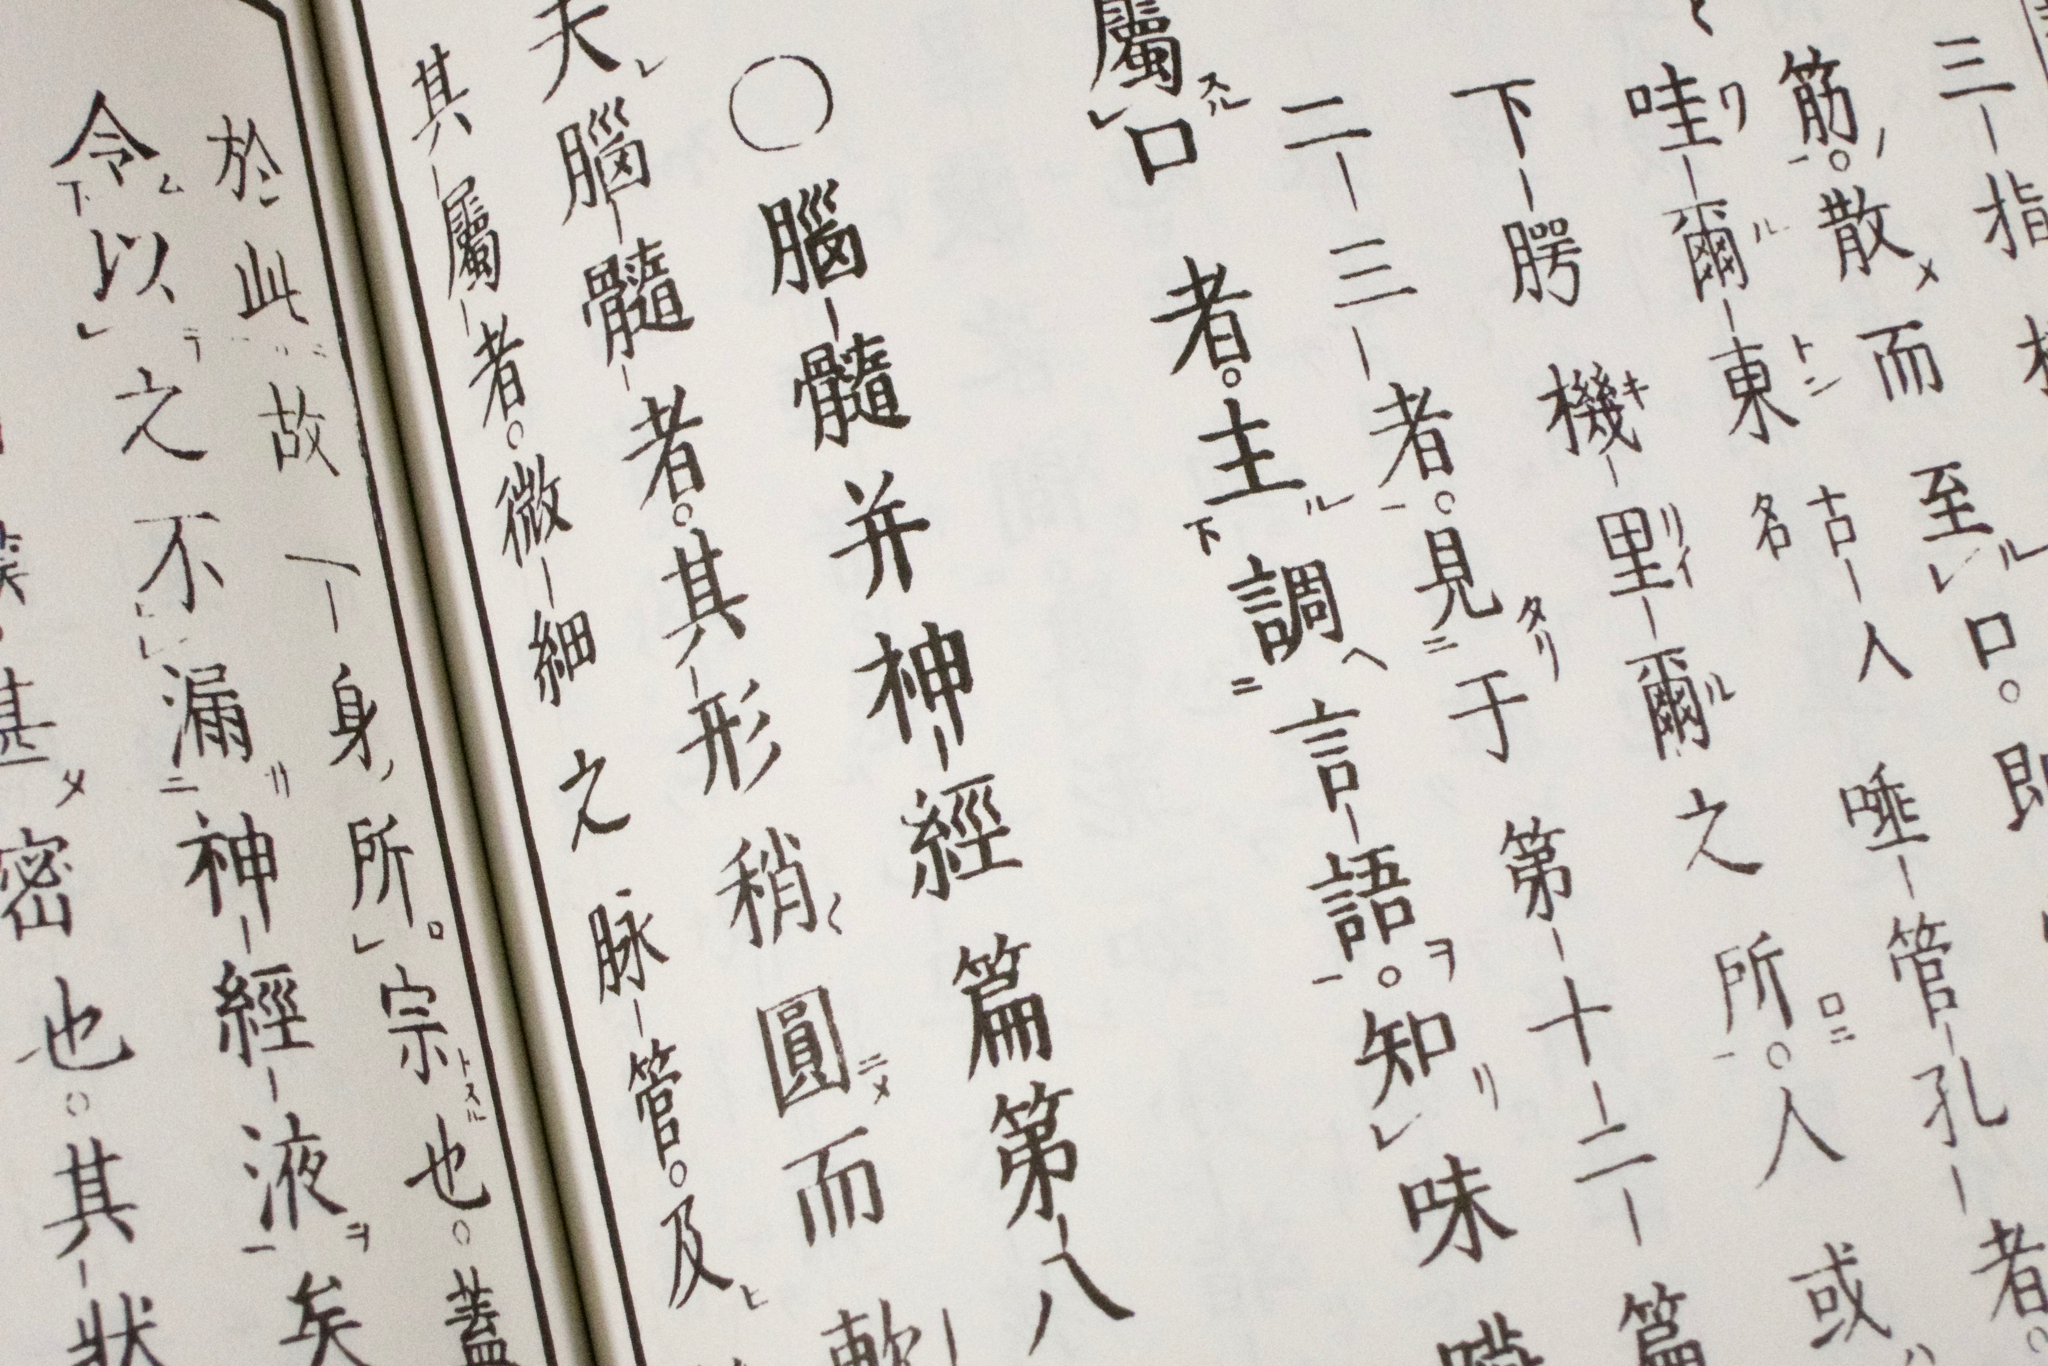 三指
筋。散而至口。即
哇爾東古人名唾管孔者。
下腭機里爾之所。人或
二三者。見于第十二篇
屬口者。主調言語。知味
○腦髓并神經篇第八
夫腦髓者。其形稍圓而軟
其屬者。微細之脉管。及
於此故一身所。宗也。蓋
令以之不漏神經液矣
甚密也。其狀